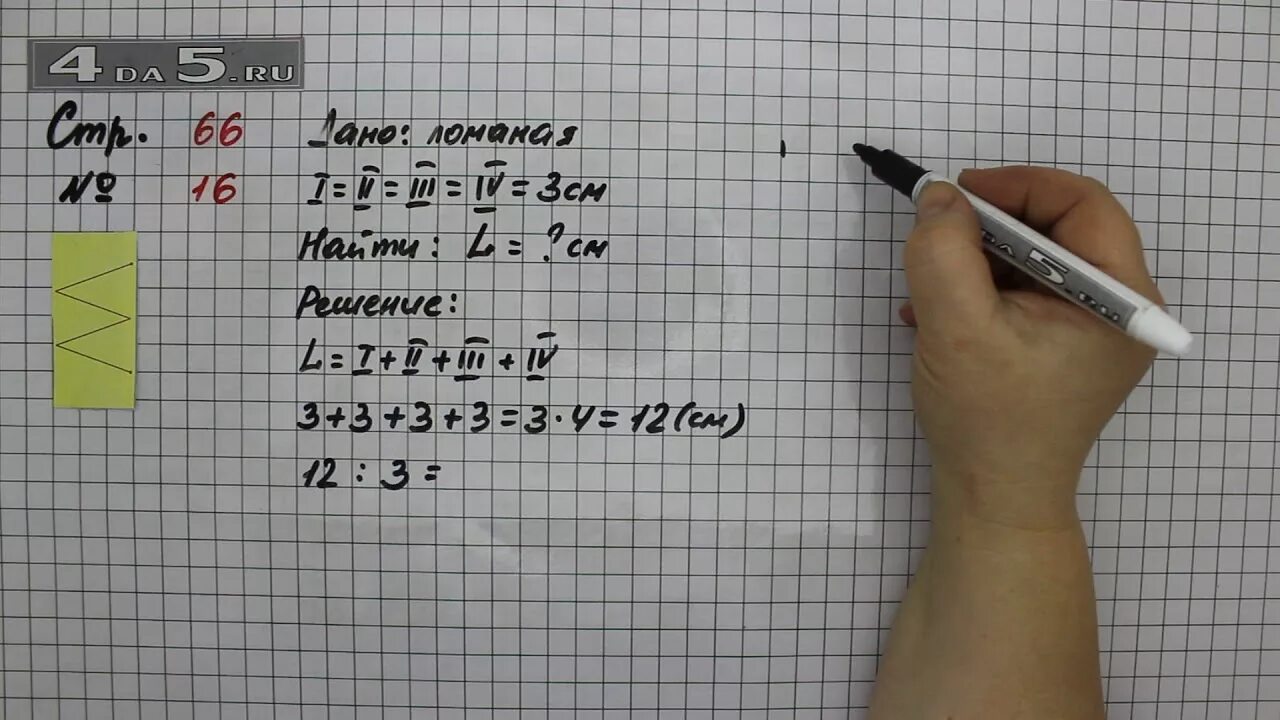 4DA5.RU
Стр. 66
№ 16
Дано: ломаная
I = II = III = IV = 3 см
Найти: L = ? см
Решение:
L = I + II + III + IV
3 + 3 + 3 + 3 = 3 · 4 = 12 (см)
12 : 3 =
DA5.RU